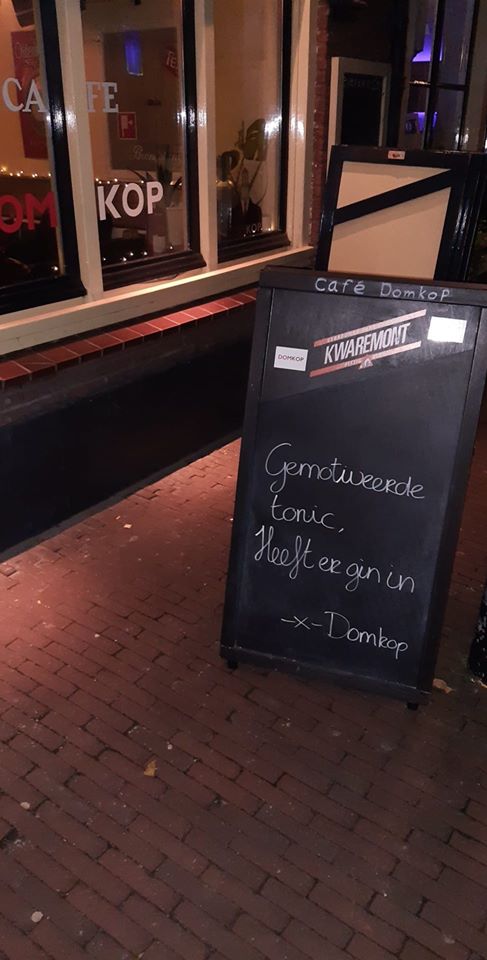 CAFE
DOMKOP
Café Domkop
DOMKOP
KWAREMONT
Gemotiveerde
tonic,
Heeft er gin in
-x- Domkop